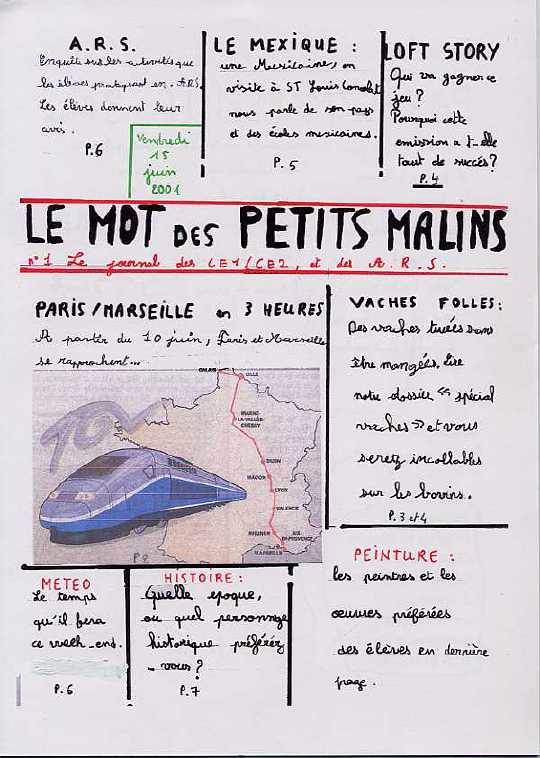 A.R.S.
Enquête sur les activités que
les élèves pratiquent en ARS.
Les élèves donnent leur
avis.
P.6
Vendredi
15
juin
2001
LE MEXIQUE :
une Mexicaine, en
visite à ST Louis Consolat
nous parle de son pays
et des écoles mexicaines.
P.5
LOFT STORY
Qui va gagner ce
jeu ?
Pourquoi cette
emission a t-elle
tant de succés ?
P.4
LE MOT DES PETITS MALINS
n°1 Le journal des CE1/CE2, et des A.R.S.
PARIS/MARSEILLE en 3 HEURES
A partir du 10 juin, Paris et Marseille
se rapprochent...
TGV
CALAIS
LILLE
MARNE-
LA-VALLÉE-
CHESSY
DIJON
MACON
LYON
VALENCE
AVIGNON
AIX-
EN-PROVENCE
MARSEILLE
P.2
VACHES FOLLES :
Des vaches tuées sans
être mangées. Lire
notre dossier "spécial
vaches" et vous
serez incollables
sur les bovins.
P.3 et 4
METEO
Le temps
qu'il fera
ce week-end.
P.6
HISTOIRE :
Quelle epoque,
ou quel personnage
historique préférez
-vous ?
P.7
PEINTURE :
les peintres et les
œuvres préférées
des élèves en dernière
page.